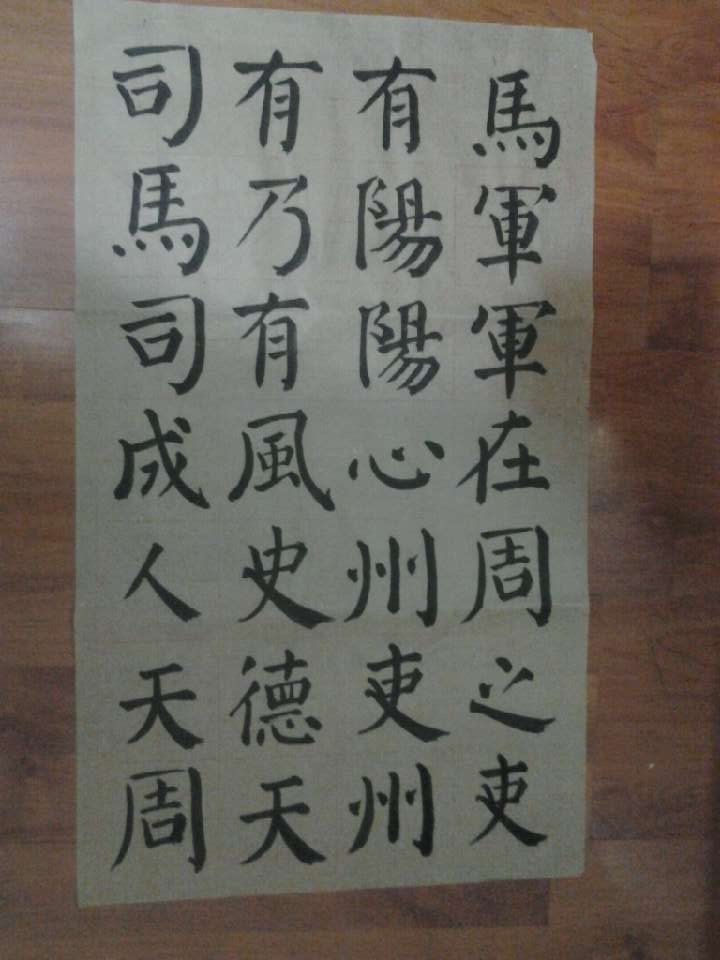 馬軍軍在周之吏
有陽陽心州吏州
有乃有風史德天
司馬司成人天周